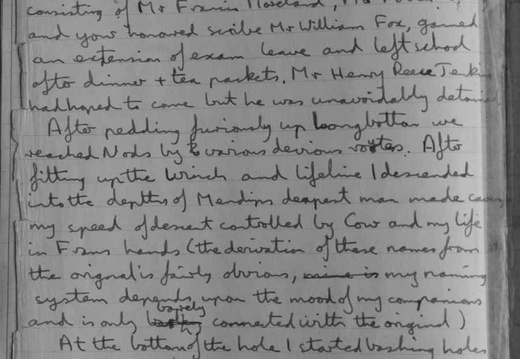 consisting of Mr Francis Moreland, Mr
and your honored scribe Mr William Fox, gained
an extension of exam leave and left school
after dinner + tea packets. Mr Henry Reece Jenkin
had hoped to come but he was unavoidably detained
After pedding furiously up Longbottom we
reached Nods by various devious routes. After
fitting up the winch and lifeline I descended
into the depths of Mendips deepest man made cave
my speed of descent controlled by Cow and my life
in Frans hands (the derivation of these names from
the original is fairly obvious, my naming
system depends, upon the mood of my companions
and is only barely connected with the original)
At the bottom of the hole I started bashing holes